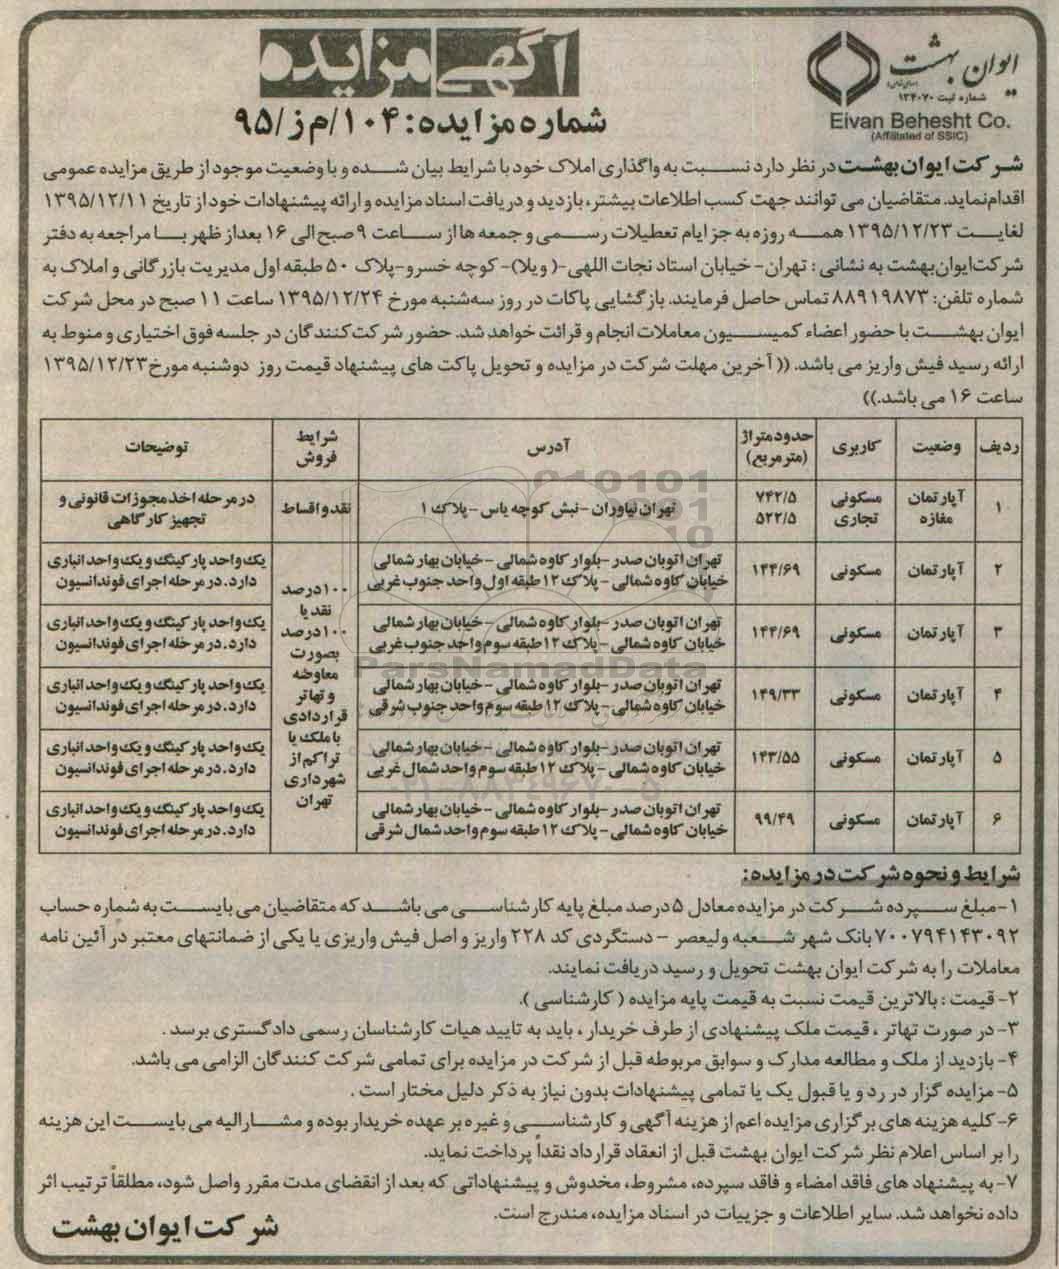 ایوان بهشت
شماره ثبت ۱۳۴۰۷۰
Eivan Behesht Co.
(Affiliated of SSIC)
آگهی مزایده
شماره مزایده: ۱۰۴/م ز/۹۵
شرکت ایوان بهشت در نظر دارد نسبت به واگذاری املاک خود با شرایط بیان شده و با وضعیت موجود از طریق مزایده عمومی
اقدام نماید. متقاضیان می توانند جهت کسب اطلاعات بیشتر، بازدید و دریافت اسناد مزایده و ارائه پیشنهادات خود از تاریخ ۱۳۹۵/۱۲/۱۱
لغایت ۱۳۹۵/۱۲/۲۳ همه روزه به جز ایام تعطیلات رسمی و جمعه ها از ساعت ۹ صبح الی ۱۶ بعداز ظهر با مراجعه به دفتر
شرکت ایوان بهشت به نشانی : تهران- خیابان استاد نجات اللهی-( ویلا)- کوچه خسرو-پلاک ۵۰ طبقه اول مدیریت بازرگانی و املاک به
شماره تلفن: ۸۸۹۱۹۸۷۳ تماس حاصل فرمایند. بازگشایی پاکات در روز سه‌شنبه مورخ ۱۳۹۵/۱۲/۲۴ ساعت ۱۱ صبح در محل شرکت
ایوان بهشت با حضور اعضاء کمیسیون معاملات انجام و قرائت خواهد شد. حضور شرکت کنندگان در جلسه فوق اختیاری و منوط به
ارائه رسید فیش واریز می باشد. (( آخرین مهلت شرکت در مزایده و تحویل پاکت های پیشنهاد قیمت روز دوشنبه مورخ ۱۳۹۵/۱۲/۲۳
ساعت ۱۶ می باشد.))
ردیف وضعیت کاربری حدود متراژ (متر مربع) آدرس شرایط فروش توضیحات
۱ آپارتمان مغازه مسکونی تجاری ۷۴۲/۵ ۵۲۲/۵ تهران نیاوران - نبش کوچه یاس - پلاک ۱ نقد و اقساط در مرحله اخذ مجوزات قانونی و تجهیز کارگاهی
۲ آپارتمان مسکونی ۱۴۴/۶۹ تهران اتوبان صدر - بلوار کاوه شمالی - خیابان بهار شمالی خیابان کاوه شمالی - پلاک ۱۲ طبقه اول واحد جنوب غربی یک واحد پارکینگ و یک واحد انباری دارد. در مرحله اجرای فوندانسیون
۱۰۰ درصد نقد یا ۱۰۰ درصد بصورت معاوضه و تهاتر قراردادی با ملک یا تراکم از شهرداری تهران
۳ آپارتمان مسکونی ۱۴۴/۶۹ تهران اتوبان صدر - بلوار کاوه شمالی - خیابان بهار شمالی خیابان کاوه شمالی - پلاک ۱۲ طبقه سوم واحد جنوب غربی یک واحد پارکینگ و یک واحد انباری دارد. در مرحله اجرای فوندانسیون
۴ آپارتمان مسکونی ۱۴۹/۳۳ تهران اتوبان صدر - بلوار کاوه شمالی - خیابان بهار شمالی خیابان کاوه شمالی - پلاک ۱۲ طبقه سوم واحد جنوب شرقی یک واحد پارکینگ و یک واحد انباری دارد. در مرحله اجرای فوندانسیون
۵ آپارتمان مسکونی ۱۴۳/۵۵ تهران اتوبان صدر - بلوار کاوه شمالی - خیابان بهار شمالی خیابان کاوه شمالی - پلاک ۱۲ طبقه سوم واحد شمال غربی یک واحد پارکینگ و یک واحد انباری دارد. در مرحله اجرای فوندانسیون
۶ آپارتمان مسکونی ۹۹/۴۹ تهران اتوبان صدر - بلوار کاوه شمالی - خیابان بهار شمالی خیابان کاوه شمالی - پلاک ۱۲ طبقه سوم واحد شمال شرقی یک واحد پارکینگ و یک واحد انباری دارد. در مرحله اجرای فوندانسیون
ParsNamadData
شرایط و نحوه شرکت در مزایده:
۱-مبلغ سپرده شرکت در مزایده معادل ۵ درصد مبلغ پایه کارشناسی می باشد که متقاضیان می بایست به شماره حساب
۷۰۰۷۹۴۱۴۳۰۹۲ بانک شهر شعبه ولیعصر - دستگردی کد ۲۲۸ واریز و اصل فیش واریزی یا یکی از ضمانتهای معتبر در آئین نامه
معاملات را به شرکت ایوان بهشت تحویل و رسید دریافت نمایند.
۲- قیمت : بالاترین قیمت نسبت به قیمت پایه مزایده ( کارشناسی ).
۳- در صورت تهاتر ، قیمت ملک پیشنهادی از طرف خریدار ، باید به تایید هیات کارشناسان رسمی دادگستری برسد .
۴- بازدید از ملک و مطالعه مدارک و سوابق مربوطه قبل از شرکت در مزایده برای تمامی شرکت کنندگان الزامی می باشد.
۵- مزایده گزار در رد و یا قبول یک یا تمامی پیشنهادات بدون نیاز به ذکر دلیل مختار است .
۶- کلیه هزینه های برگزاری مزایده اعم از هزینه آگهی و کارشناسی و غیره بر عهده خریدار بوده و مشارالیه می بایست این هزینه
را بر اساس اعلام نظر شرکت ایوان بهشت قبل از انعقاد قرارداد نقداً پرداخت نماید.
۷- به پیشنهاد های فاقد امضاء و فاقد سپرده، مشروط، مخدوش و پیشنهاداتی که بعد از انقضای مدت مقرر واصل شود، مطلقاً ترتیب اثر
داده نخواهد شد. سایر اطلاعات و جزییات در اسناد مزایده، مندرج است.
شرکت ایوان بهشت